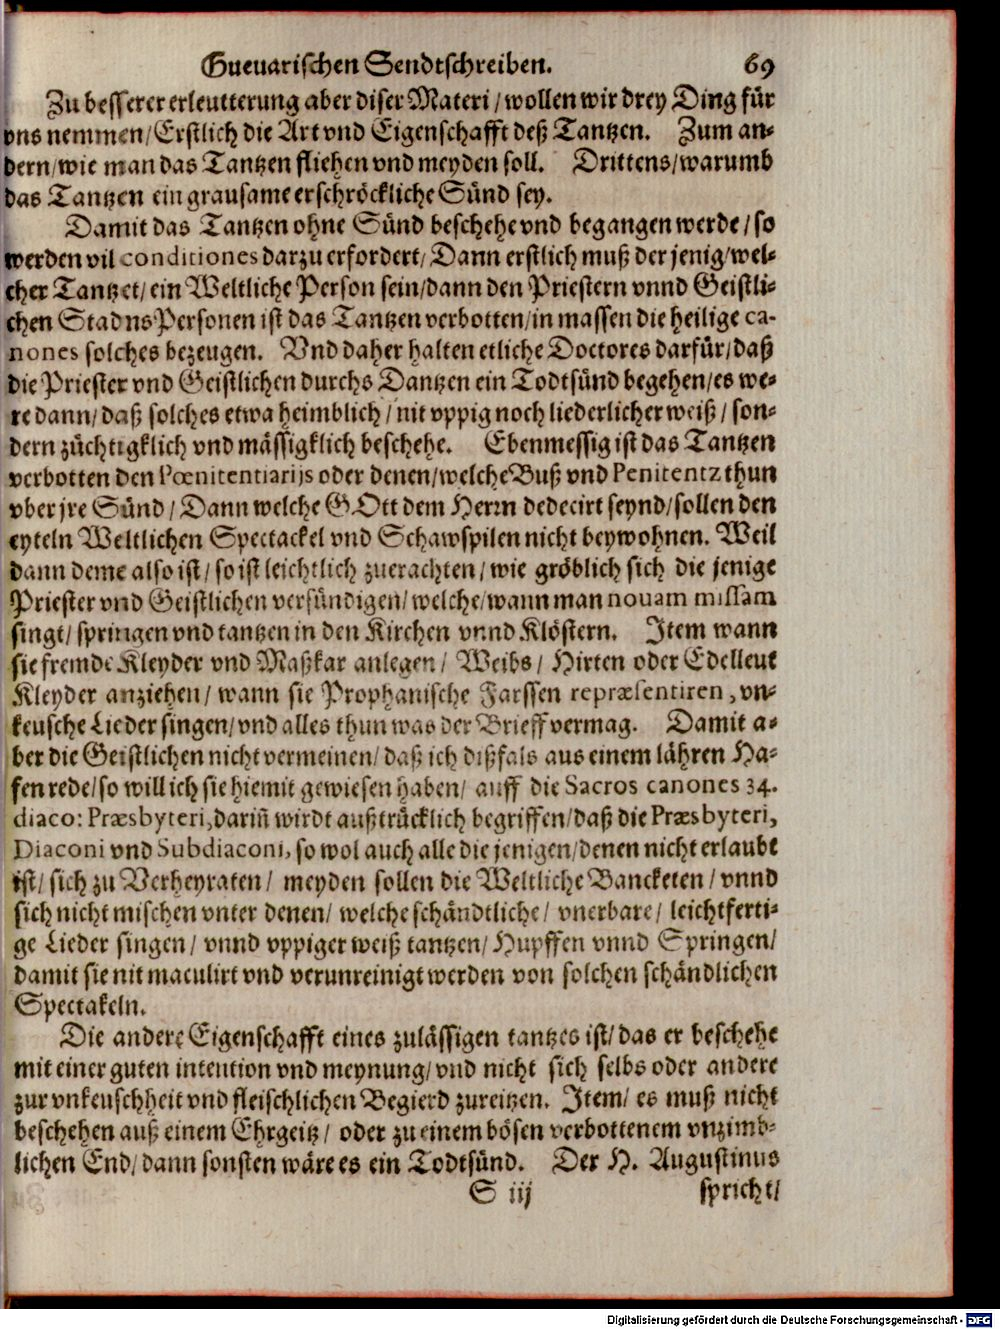 Guevarischen Sendtschreiben. 69
Zu besserer erleutterung aber diser Materi / wollen wir drey Ding für
vns nemmen / Erstlich die Art vnd Eigenschafft deß Tantzen. Zum an-
dern / wie man das Tantzen fliehen vnd meyden soll. Drittens / warumb
das Tantzen ein grausame erschröckliche Sünd sey.
Damit das Tantzen ohne Sünd beschehe vnd begangen werde / so
werden vil conditiones darzu erfordert / Dann erstlich muß der jenig / wel-
cher Tantzet / ein Weltliche Person sein / dann den Priestern vnnd Geistli-
chen Stadns Personen ist das Tantzen verbotten / in massen die heilige ca-
nones solches bezeugen. Vnd daher halten etliche Doctores darfür / daß
die Priester vnd Geistlichen durchs Dantzen ein Todtsünd begehen / es we-
re dann / daß solches etwa heimblich / nit vppig noch liederlicher weiß / son-
dern züchtigklich vnd mässigklich beschehe. Ebenmessig ist das Tantzen
verbotten den Pœnitentiarijs oder denen / welche Buß vnd Penitentz thun
vber jre Sünd / Dann welche GOtt dem Herrn dedecirt seynd / sollen den
eyteln Weltlichen Spectackel vnd Schawspilen nicht beywohnen. Weil
dann deme also ist / so ist leichtlich zuerachten / wie gröblich sich die jenige
Priester vnd Geistlichen versündigen / welche / wann man nouam missam
singt / springen vnd tantzen in den Kirchen vnnd Klöstern. Item wann
sie fremde Kleyder vnd Maßkar anlegen / Weibs / Hirten oder Edelleut
Kleyder anziehen / wann sie Prophanische Farssen repræsentiren, vn-
keusche Lieder singen / vnd alles thun was der Brieff vermag. Damit a-
ber die Geistlichen nicht vermeinen / daß ich dißfals aus einem lähren Ha-
fen rede / so will ich sie hiemit gewiesen haben / auff die Sacros canones 34.
diaco: Præsbyteri, dariñ wirdt außtrücklich begriffen / daß die Præsbyteri,
Diaconi vnd Subdiaconi, so wol auch alle die jenigen / denen nicht erlaubt
ist / sich zu Verheyraten / meyden sollen die Weltliche Bancketen / vnnd
sich nicht mischen vnter denen / welche schändtliche / vnerbare / leichtferti-
ge Lieder singen / vnnd vppiger weiß tantzen / Hupffen vnnd Springen /
damit sie nit maculirt vnd verunreinigt werden von solchen schändlichen
Spectakeln.
Die andere Eigenschafft eines zulässigen tantzes ist / das er beschehe
mit einer guten intention vnd meynung / vnd nicht sich selbs oder andere
zur vnkeuschheit vnd fleischlichen Begierd zureitzen. Item / es muß nicht
beschehen auß einem Ehrgeitz / oder zu einem bösen verbottenem vnzimb-
lichen End / dann sonsten wäre es ein Todtsünd. Der H. Augustinus
S iij spricht /
Digitalisierung gefördert durch die Deutsche Forschungsgemeinschaft - DFG